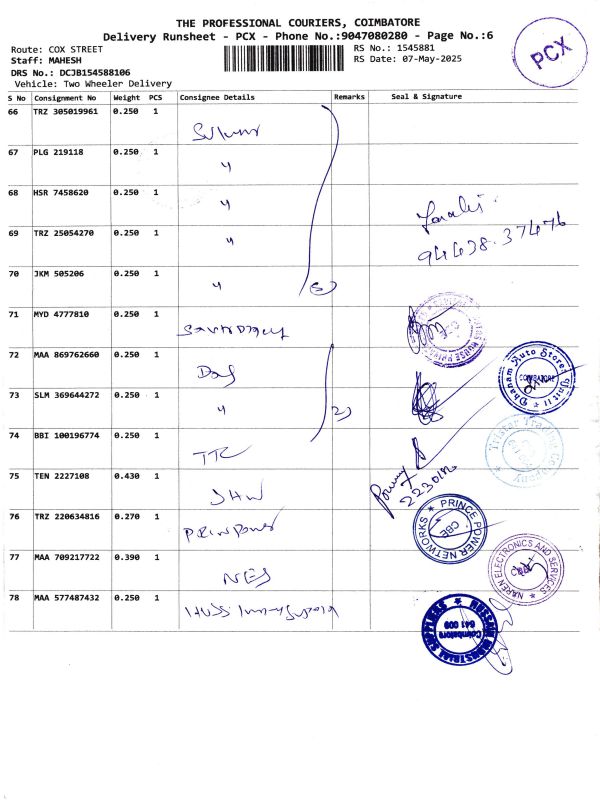 THE PROFESSIONAL COURIERS, COIMBATORE
Delivery Runsheet - PCX - Phone No.:9047080280 - Page No.:6
PCX
Route: COX STREET
RS No.: 1545881
Staff: MAHESH
RS Date: 07-May-2025
DRS No.: DCJB154588106
Vehicle: Two Wheeler Delivery
S No Consignment No Weight PCS Consignee Details Remarks Seal & Signature
66 TRZ 305019961 0.250 1
67 PLG 219118 0.250 1 "
68 HSR 7458620 0.250 1 "
69 TRZ 25054270 0.250 1 "
94428.37476
70 JKM 505206 0.250 1 " (5)
71 MYD 4777810 0.250 1
72 MAA 869762660 0.250 1
Dhanam Auto Stores Unit II
COIMBATORE
73 SLM 369644272 0.250 1 " 2)
74 BBI 100196774 0.250 1 TTC
Tristar Trading Company
75 TEN 2227108 0.430 1 JHW
76 TRZ 220634816 0.270 1
PRINCE POWER NETWORKS
CBE
77 MAA 709217722 0.390 1 NES
NAREN ELECTRONICS AND SERVICES
78 MAA 577487432 0.250 1
HUSSAIN INDUSTRIAL SUPPLIERS
Coimbatore
641 009